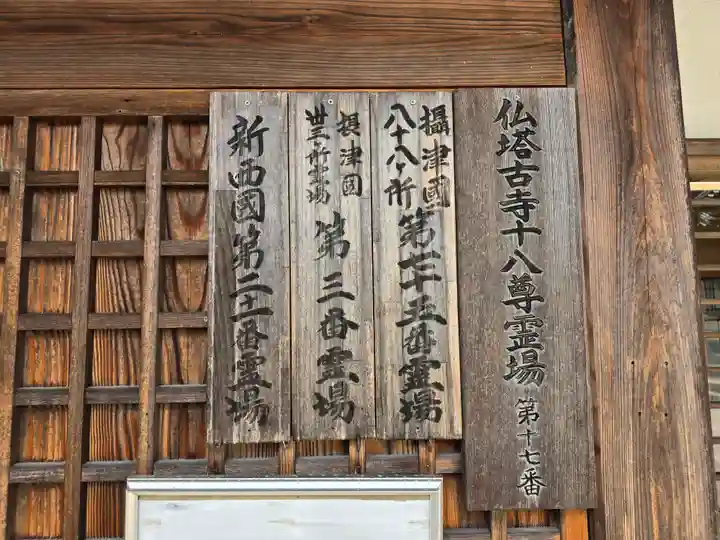 仏塔古寺十八尊霊場 第十七番
攝津國
八十八ヶ所第七十五番霊場
摂津國
卅三ヶ所霊場
第三番霊場
新西國第二十一番霊場